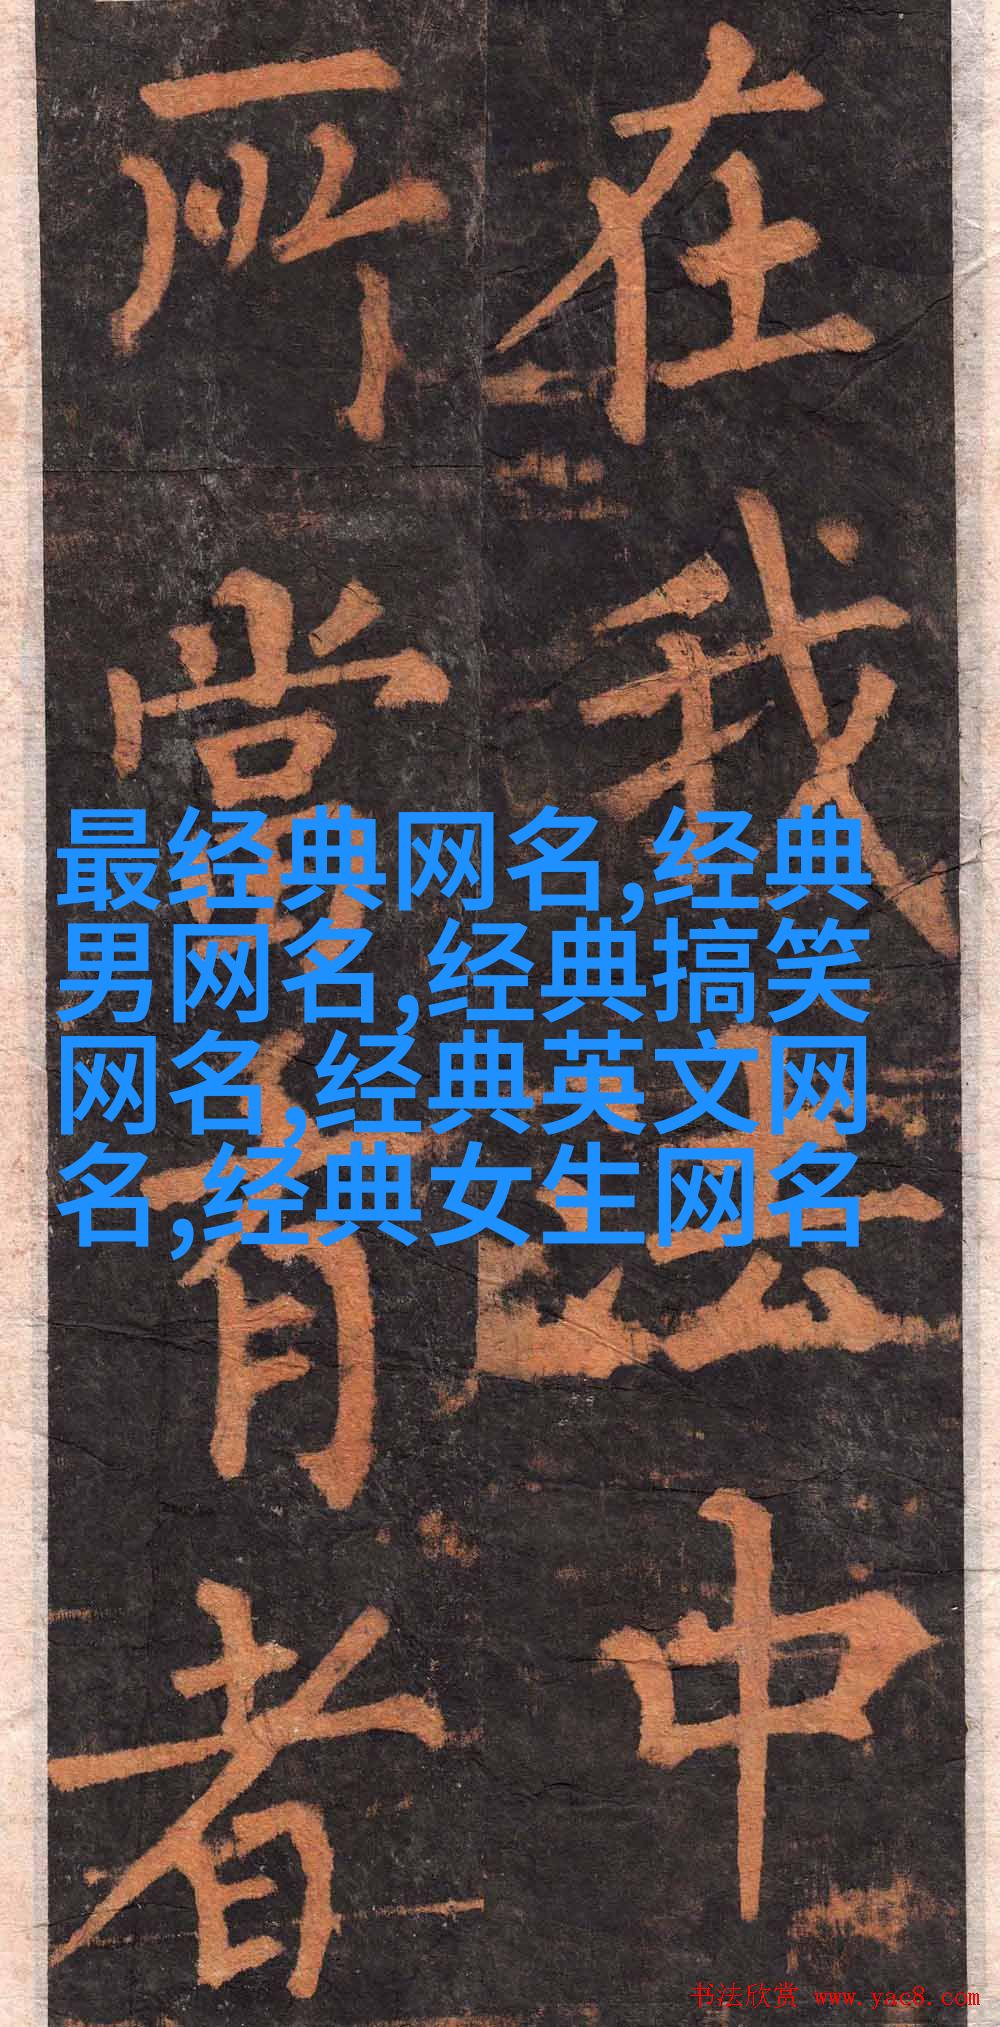 在我法中
所當有者
最经典网名,经典
男网名,经典搞笑
网名,经典英文网
名,经典女生网名
书法欣赏 www.yac8.com